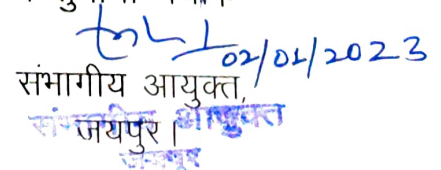 02/01/2023
संभागीय आयुक्त,
जयपुर।
संभागीय आयुक्त
जयपुर